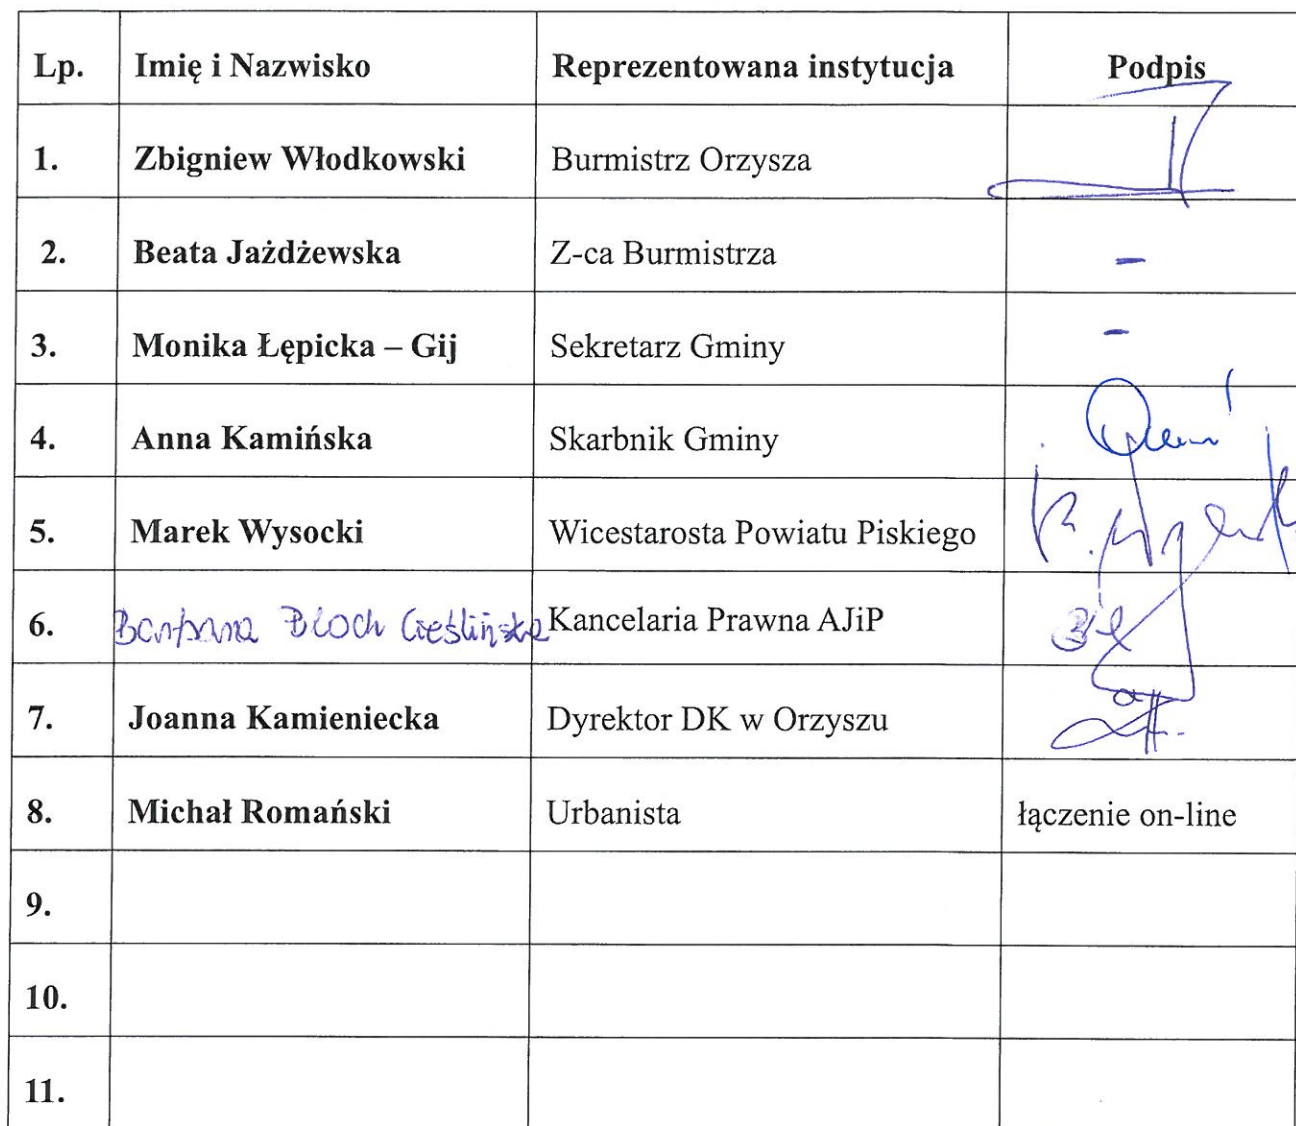 Lp. Imię i Nazwisko Reprezentowana instytucja Podpis
1. Zbigniew Włodkowski Burmistrz Orzysza
2. Beata Jażdżewska Z-ca Burmistrza -
3. Monika Łępicka – Gij Sekretarz Gminy -
4. Anna Kamińska Skarbnik Gminy
5. Marek Wysocki Wicestarosta Powiatu Piskiego
6. Barbara Bloch Cieślińska Kancelaria Prawna AJiP
7. Joanna Kamieniecka Dyrektor DK w Orzyszu
8. Michał Romański Urbanista łączenie on-line
9.
10.
11.